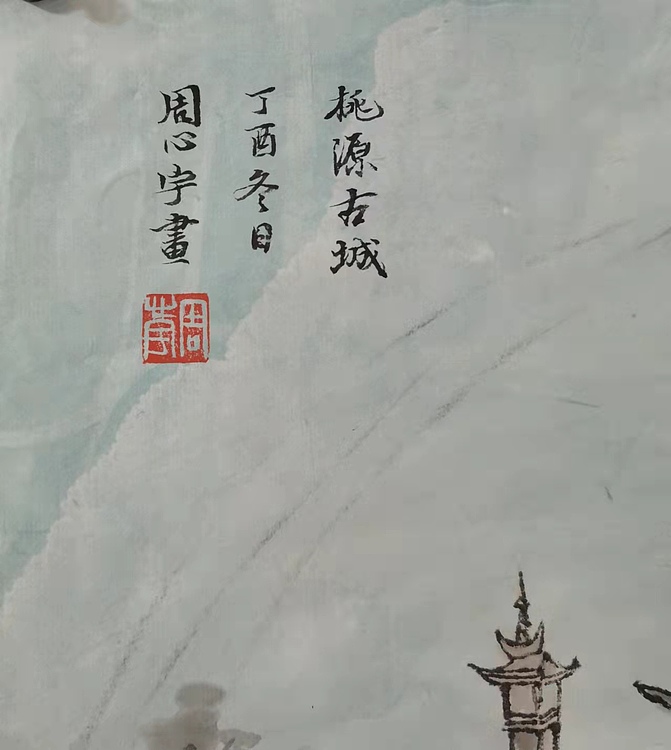 桃源古城
丁酉冬日
周心宇畫